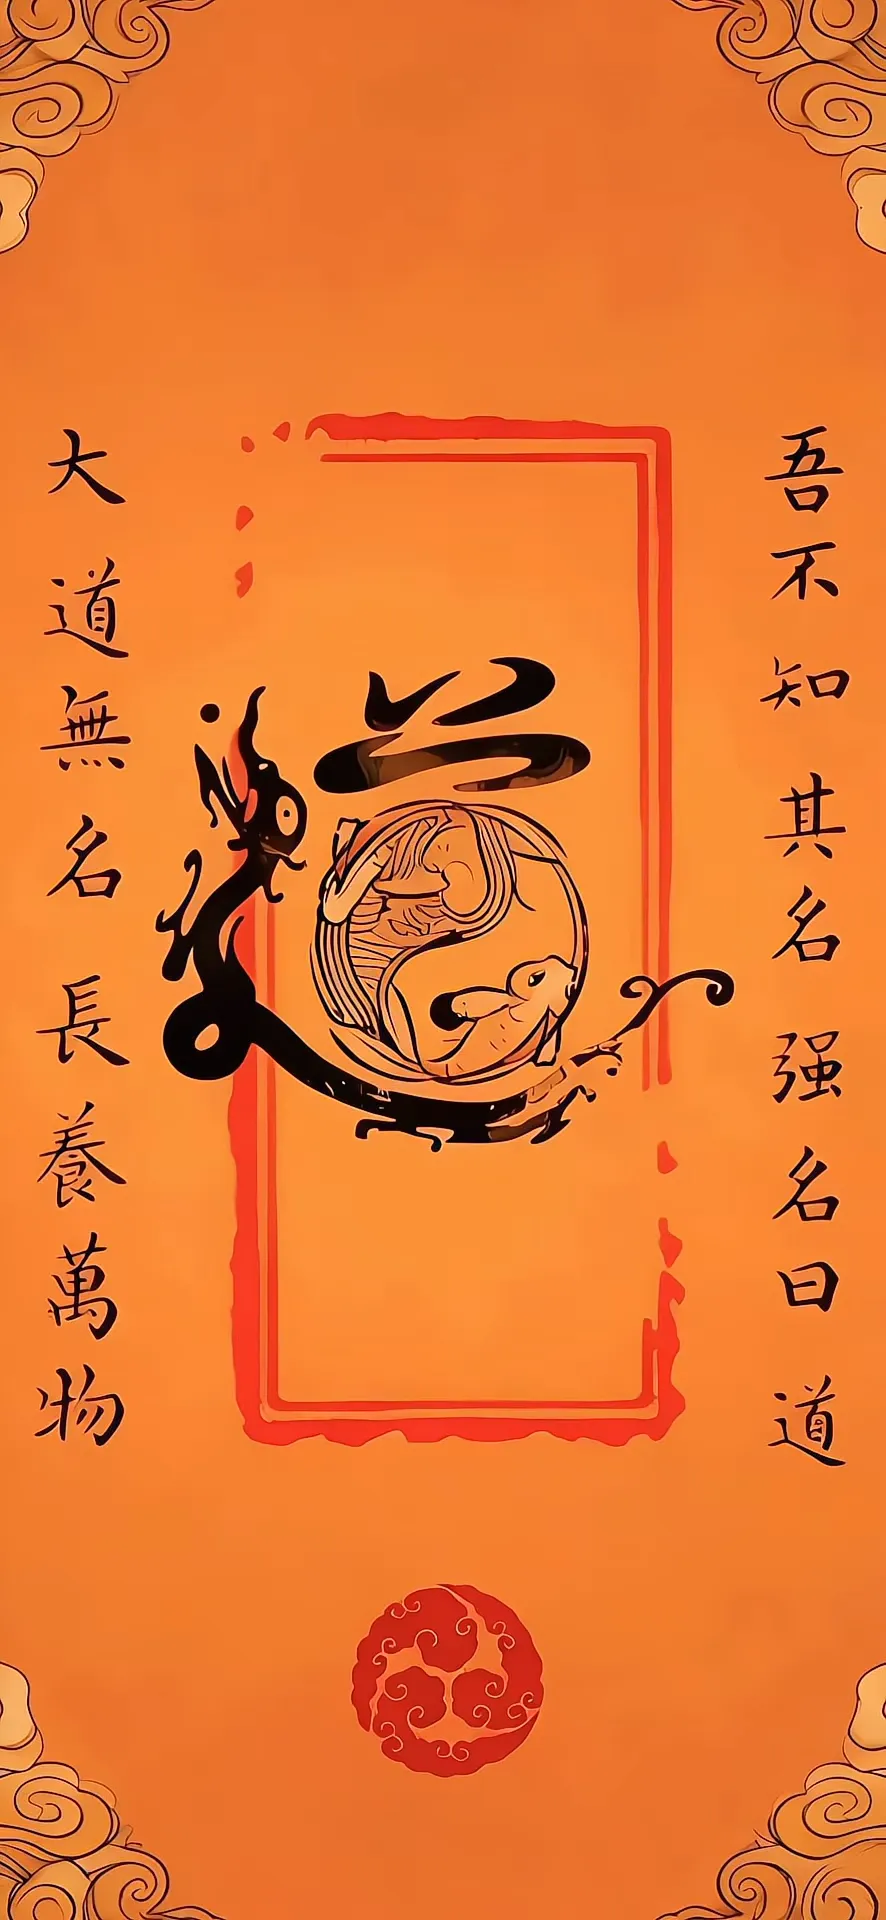 吾不知其名强名曰道
大道無名長養萬物
道